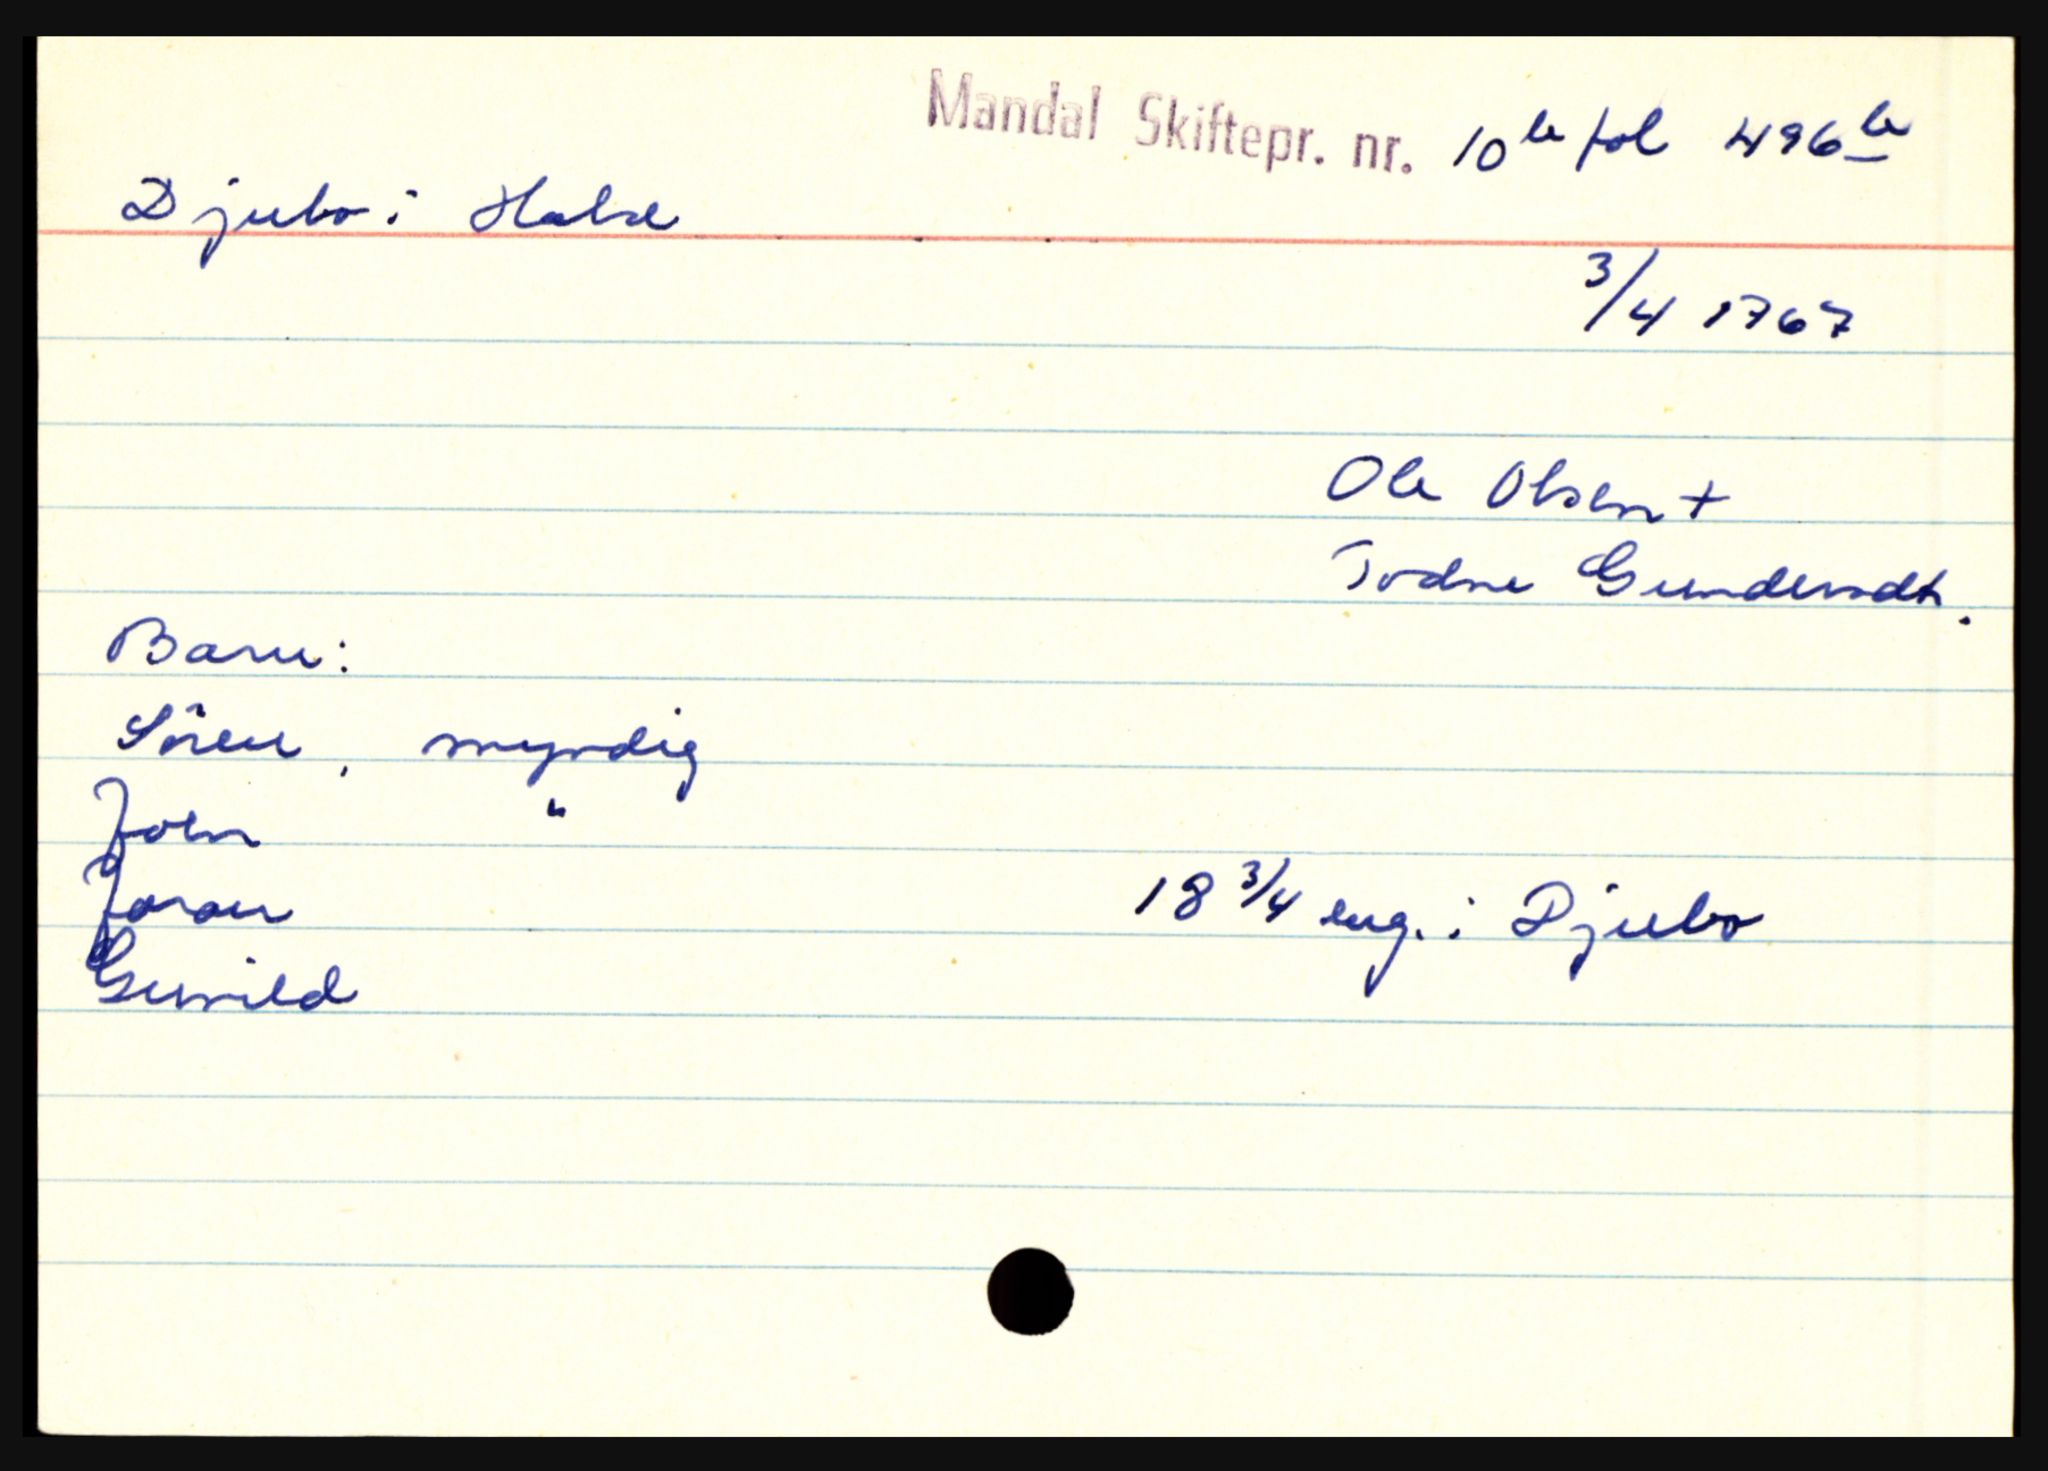 Mandal Skiftepr. nr. 10 b fol 496 b
Djubo i Halse
3/4 1767
Ole Olsen +
Todne Gundersdt.
Barn:
Sören, myndig
Joen "
Joran 18 3/4 eng. i Djubo
Gunild